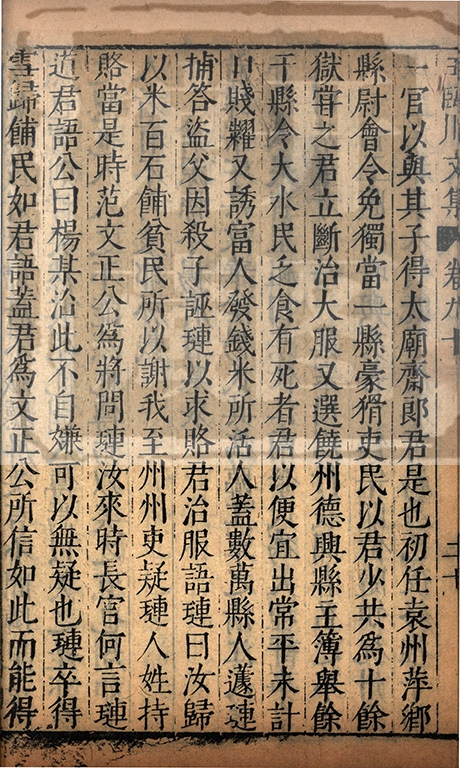 王臨川文集 卷九十 二十
一官以與其子得太廟齋郎君是也初任袁州萍鄉
縣尉會令免獨當一縣豪猾吏民以君少共爲十餘
獄嘗之君立斷治大服又選饒州德興縣主簿舉餘
干縣令大水民乏食有死者君以便宜出常平未計
口賤糶又誘富人發錢米所活人蓋數萬縣人璉
捕笞盜父因殺子誣璉以求賂君治服語璉曰汝歸
以米百石餔貧民所以謝我至州州吏疑璉人姓持
賂當是時范文正公爲將問璉汝來時長官何言璉
道君語公曰楊某沿此不自嫌可以無疑也璉卒得
雪歸餔民如君語蓋君爲文正公所信如此而能得